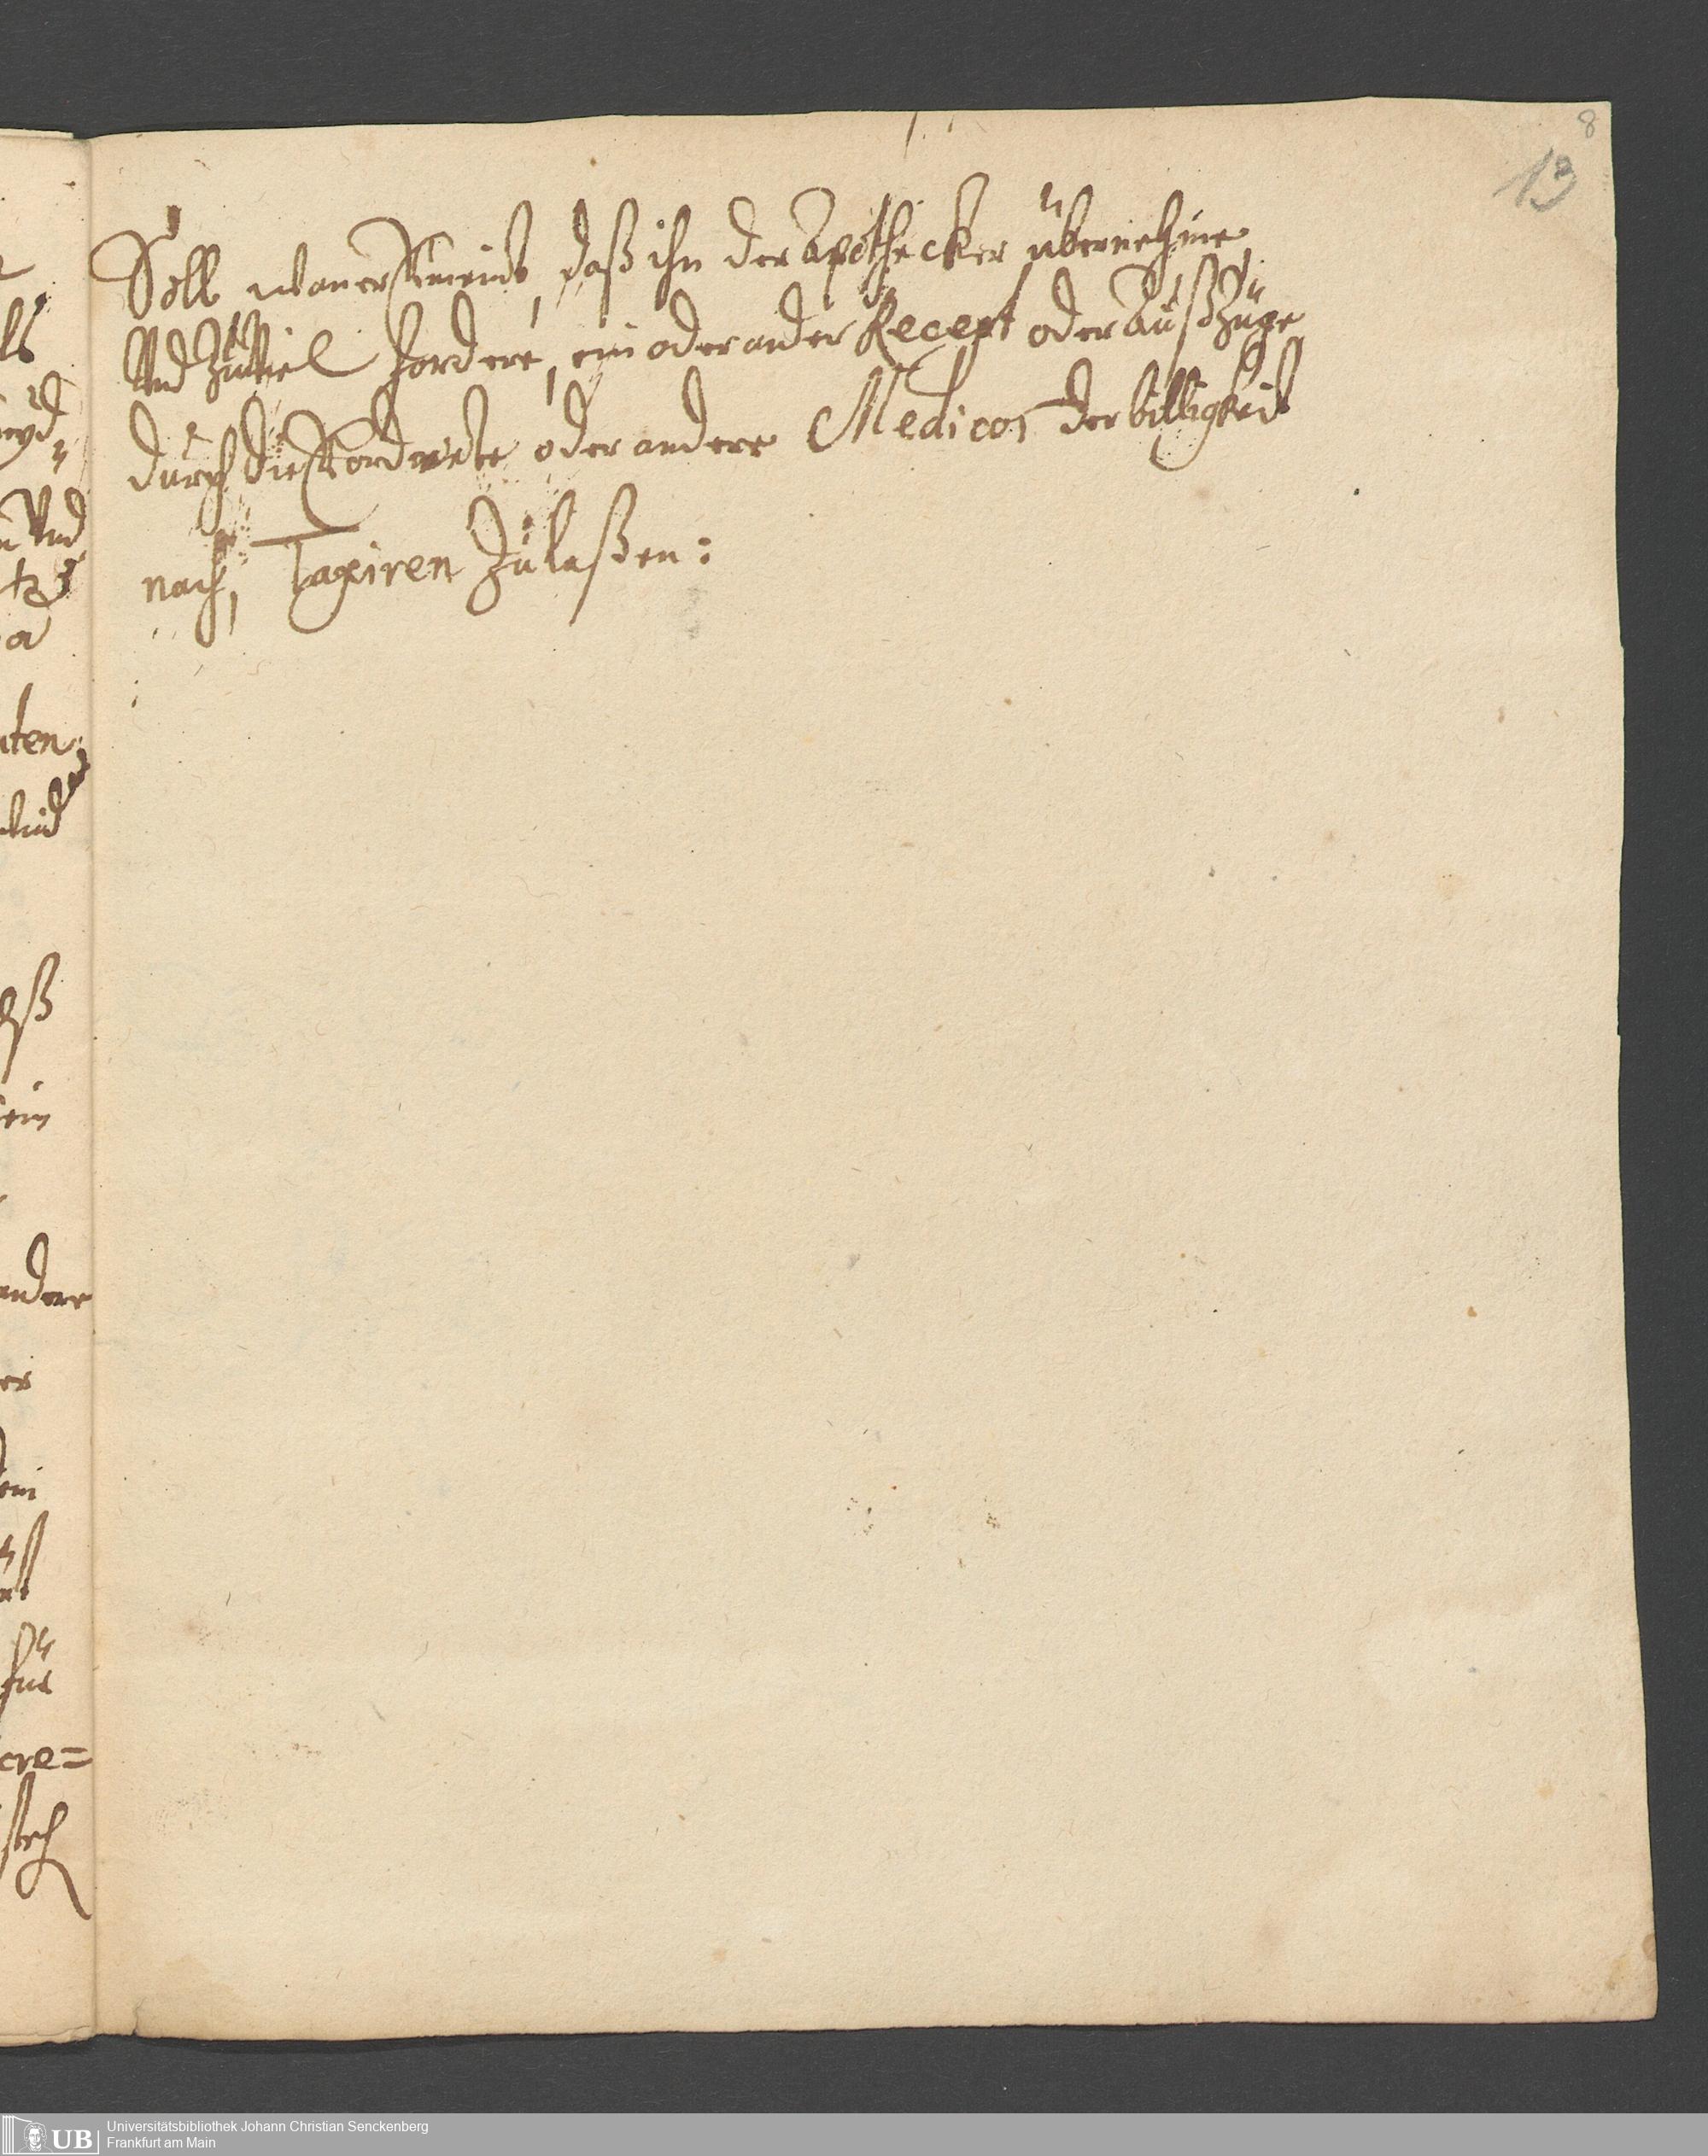 8
13
Soll wan er Vermeint, daß ihn der Apothecker übernehme
Vnd Zuviel fordere, ein oder ander Recept oder Außzüge
durch die Verordnete oder andere Medicos der billigkeit
nach, Taxiren Zulaßen:
ls
Vnd
a
ten
ß
ein
andere
er
ein
für
cre=
UB Universitätsbibliothek Johann Christian Senckenberg
Frankfurt am Main